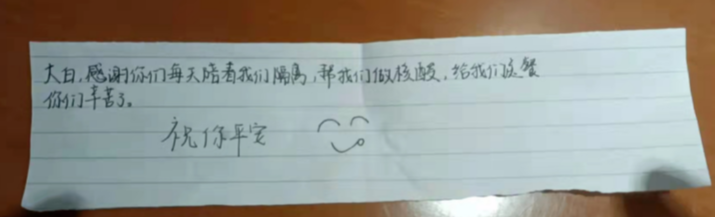 大白，感谢你们每天陪着我们隔离，帮我们做核酸，给我们送餐
你们辛苦了。
祝你平安